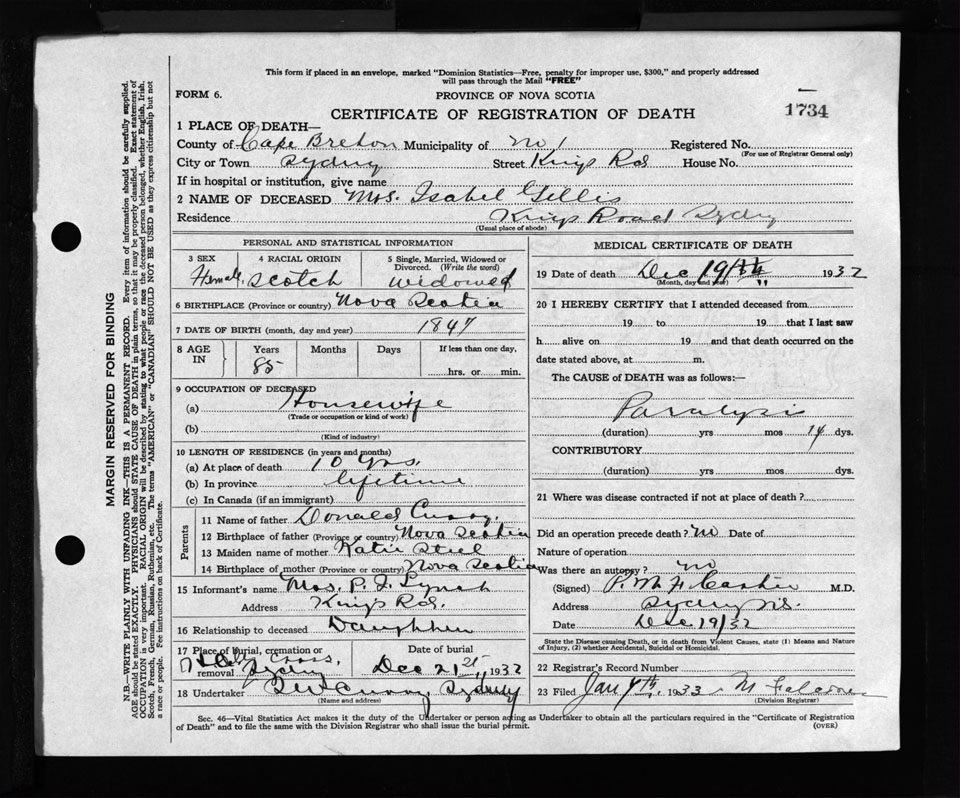 This form if placed in an envelope, marked "Dominion Statistics—Free, penalty for improper use, $300," and properly addressed
will pass through the Mail "FREE"
FORM 6.
PROVINCE OF NOVA SCOTIA
CERTIFICATE OF REGISTRATION OF DEATH
1734
1 PLACE OF DEATH—
County of Cape Breton Municipality of No 1 Registered No.
(For use of Registrar General only)
City or Town Sydney Street Kings Rd House No.
If in hospital or institution, give name
2 NAME OF DECEASED Mrs. Isabel Gillis
Residence Kings Road Sydney
(Usual place of abode)
PERSONAL AND STATISTICAL INFORMATION
3 SEX 4 RACIAL ORIGIN 5 Single, Married, Widowed or
Divorced. (Write the word)
Female Scotch Widowed
6 BIRTHPLACE (Province or country) Nova Scotia
7 DATE OF BIRTH (month, day and year) 1847
8 AGE IN Years Months Days If less than one day,
85 hrs. or min.
9 OCCUPATION OF DECEASED
(a) Housewife
(Trade or occupation or kind of work)
(b)
(Kind of industry)
10 LENGTH OF RESIDENCE (in years and months)
(a) At place of death 10 yrs.
(b) In province lifetime
(c) In Canada (if an immigrant)
Parents
11 Name of father Donald Curry
12 Birthplace of father (Province or country) Nova Scotia
13 Maiden name of mother Katie Steel
14 Birthplace of mother (Province or country) Nova Scotia
15 Informant's name Mrs. P. J. Lynch
Address Kings Rd.
16 Relationship to deceased Daughter
17 Place of burial, cremation or removal Date of burial
Cross, Sydney Dec 21 21st 1932
18 Undertaker Curry, Sydney
(Name and address)
MEDICAL CERTIFICATE OF DEATH
19 Date of death Dec 19 1932
(Month, day and year)
20 I HEREBY CERTIFY that I attended deceased from
19 to 19 that I last saw
h alive on 19 and that death occurred on the
date stated above, at m.
The CAUSE of DEATH was as follows:—
Paralysis
(duration) yrs mos 14 dys.
CONTRIBUTORY
(duration) yrs mos dys.
21 Where was disease contracted if not at place of death?
Did an operation precede death? no Date of
Nature of operation
Was there an autopsy? no
(Signed) P. M. M.D.
Address Sydney NS.
Date Dec 19/32
State the Disease causing Death, or in death from Violent Causes, state (1) Means and Nature
of Injury, (2) whether Accidental, Suicidal or Homicidal.
22 Registrar's Record Number
23 Filed Jan 7th 1933 M
(Division Registrar)
Sec. 46—Vital Statistics Act makes it the duty of the Undertaker or person acting as Undertaker to obtain all the particulars required in the "Certificate of Registration
of Death" and to file the same with the Division Registrar who shall issue the burial permit.
(OVER)
MARGIN RESERVED FOR BINDING
N.B.—WRITE PLAINLY WITH UNFADING INK—THIS IS A PERMANENT RECORD. Every item of information should be carefully supplied.
AGE should be stated EXACTLY. PHYSICIANS should STATE CAUSE OF DEATH in plain terms, so that it may be properly classified. Exact statement of
OCCUPATION is very important. RACIAL ORIGIN will be described by stating to what people or race the deceased person belonged, whether English, Irish,
Scotch, French, German, Russian, Ruthenian, etc. The terms "AMERICAN" or "CANADIAN" SHOULD NOT BE USED as they express citizenship but not
a race or people. Fee instructions on back of Certificate.